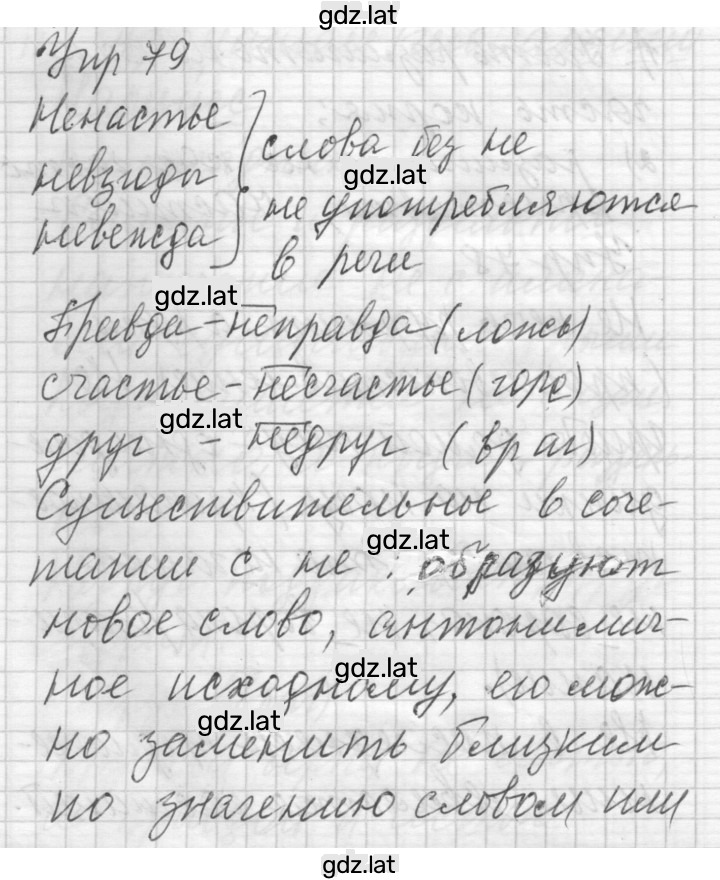 gdz.lat
Упр 79
Ненастье
невзгоды
невежда
слова без не
gdz.lat
не употребляются
в речи
gdz.lat
Правда - неправда (ложь)
счастье - несчастье (горе)
gdz.lat
друг - недруг (враг)
Существительные в соче-
gdz.lat
тании с не образуют
новое слово, антонимич-
gdz.lat
ное исходному, его мож-
gdz.lat
но заменить близким
по значению словом или
gdz.lat